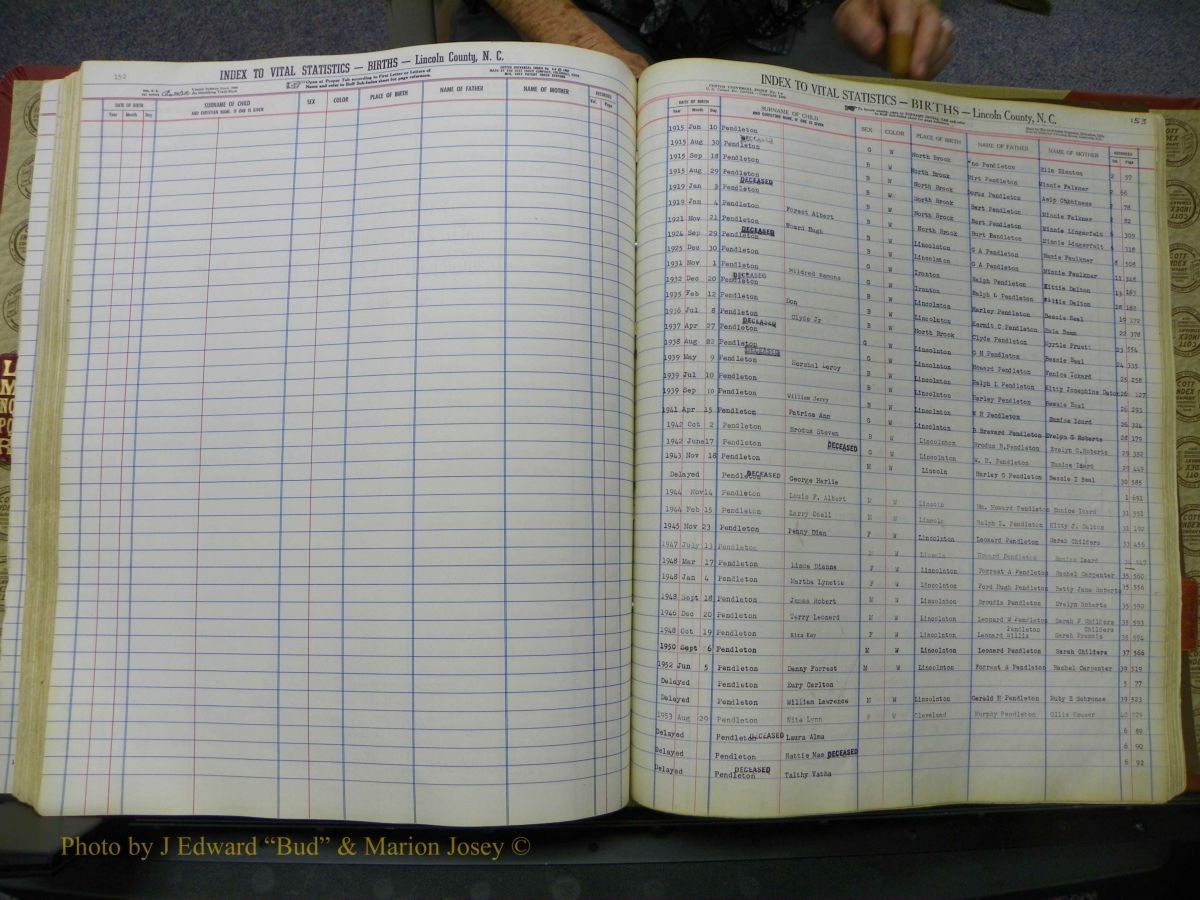 152
INDEX TO VITAL STATISTICS — BIRTHS — Lincoln County, N. C.
Open at Proper Tab according to First Letter or Letters of
Name and refer to Sub-Index sheet for page references.
DATE OF BIRTH
Year Month Day
SURNAME OF CHILD
AND CHRISTIAN NAME, IF ONE IS GIVEN
SEX
COLOR
PLACE OF BIRTH
NAME OF FATHER
NAME OF MOTHER
RECORDED
Vol. Page
INDEX TO VITAL STATISTICS — BIRTHS — Lincoln County, N. C.
153
DATE OF BIRTH
Year Month Day
SURNAME OF CHILD
AND CHRISTIAN NAME, IF ONE IS GIVEN
SEX
COLOR
PLACE OF BIRTH
NAME OF FATHER
NAME OF MOTHER
RECORDED
1915 Jun 10 Pendleton G W North Brook Pendleton 57
1915 Aug 30 Pendleton DECEASED B W North Brook Pendleton Minnie Falkner 56
1915 Sep 18 Pendleton B W North Brook Dorus Pendleton 78
1915 Aug 29 Pendleton B W North Brook Bert Pendleton Minnie Falkner 82
1919 Jan 3 Pendleton DECEASED Forest Albert B W North Brook Bert Pendleton Minnie Lingerfelt 309
1919 Jan 4 Pendleton Hugh B W North Brook Burt Pendleton Minnie Lingerfelt 318
1921 Nov 21 Pendleton B W Lincolnton G A Pendleton Faulkner 8 508
1924 Sep 29 Pendleton DECEASED Lincolnton G A Pendleton Minnie Faulkner 11 348
1925 Dec 30 Pendleton Mildred Ramona G W Ironton Ralph Pendleton Kittie Dalton
1931 Nov 1 Pendleton B W Ironton Ralph L Pendleton Kittie Dalton
1932 Dec 20 Pendleton DECEASED Don B W Lincolnton Harley Pendleton Bessie Beal 19
1935 Feb 12 Pendleton Clyde Jr B W Lincolnton Kermit C Pendleton 22 378
1936 Jul 8 Pendleton B W North Brook Clyde Pendleton Myrtle Pruett 23 554
1937 Apr 27 Pendleton DECEASED G W Lincolnton G H Pendleton Bessie Beal 24 335
1938 Aug 22 Pendleton DECEASED Hershal Leroy G W Lincolnton Howard Pendleton 25 258
1939 May 9 Pendleton B W Lincolnton Ralph L Pendleton Kitty Josephine 26 127
1939 Jul 10 Pendleton William Jerry B W Lincolnton Harley Pendleton Bessie Beal 26 293
1939 Sep 10 Pendleton Patrica Ann B W Lincolnton W H Pendleton Eunice Icard 26 324
1941 Apr 15 Pendleton Brodus Steven G W Lincolnton B Brevard Pendleton Evelyn G Roberts 28 179
1942 Oct 2 Pendleton B W Lincolnton Brodus B. Pendleton Evelyn G. Roberts 29 352
1942 June 17 Pendleton DECEASED G W Lincolnton W. H. Pendleton Eunice Izard 29 449
1943 Nov 18 Pendleton M W Lincoln Harley G Pendleton Bessie I Beal 30 585
Delayed Pendleton DECEASED George Harlie 1 691
1944 Nov 14 Pendleton Louis F. Albert M W Lincoln Wm. Howard Pendleton Eunice Icard 31 551
1944 Feb 15 Pendleton Larry Odell M W Lincoln Ralph L. Pendleton Kitty J. Dalton 31 192
1945 Nov 23 Pendleton Penny Dien F W Lincolnton Leonard Pendleton Sarah Childers 33 456
1947 July 13 Pendleton M W Lincoln Howard Pendleton Eunice Izard
1948 Mar 17 Pendleton Linda Dianne F W Lincolnton Forrest A Pendleton Rachel Carpenter 35 560
1948 Jan 4 Pendleton Martha Lynette F W Lincolnton Ford Hugh Pendleton Betty Jane Roberts 35 556
1948 Sept 18 Pendleton James Robert M W Lincolnton Broudis Pendleton Evelyn Roberts 35 590
1946 Dec 20 Pendleton Terry Leonard M W Lincolnton Leonard W Pendleton Sarah F Childers 35 593
1948 Oct 19 Pendleton Rita Kay F W Lincolnton Pendleton Leonard Willis Childers Sarah Francis 35 594
1950 Sept 6 Pendleton M W Lincolnton Leonard Pendleton Sarah Childers 37 566
1952 Jun 5 Pendleton Danny Forrest M W Lincolnton Forrest A Pendleton Rachel Carpenter 39 519
Delayed Pendleton Eury Carlton 5 77
Delayed Pendleton William Lawrence M W Lincolnton Gerald H Pendleton Ruby E Schronce 39 523
1953 Aug 20 Pendleton Nita Lynn F W Cleveland Murphy Pendleton Ollie Houser 40 729
Delayed Pendleton DECEASED Laura Alma 6 89
Delayed Pendleton Hattie Mae DECEASED 6 90
Delayed Pendleton DECEASED Talthy Vatha 6 92
Photo by J Edward “Bud” & Marion Josey ©